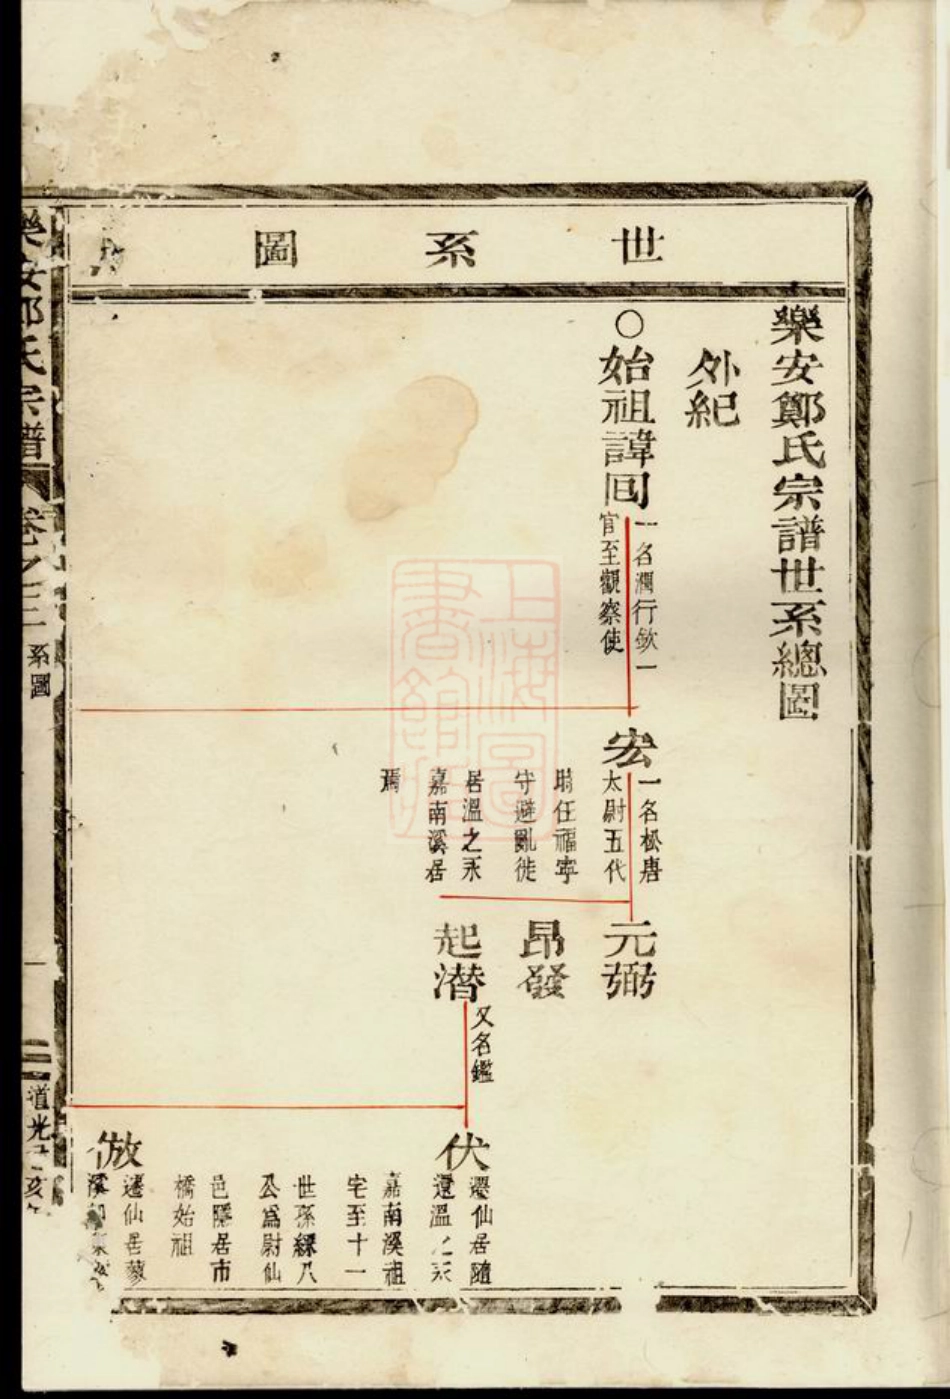 世系圖
樂安鄭氏宗譜世系總圖
外紀
○始祖諱囘
一名澗行欽一
官至觀察使
宏
一名松唐
太尉五代
時任福寧
守避亂徙
居溫之永
嘉南溪居
焉
元弼
昂發
起潛
又名鑑
伏
遷仙居隨
還溫之永
嘉南溪祖
宅至十一
世孫綵八
公為尉仙
邑隱居市
橋始祖
倣
遷仙居蓼
溪
樂安鄭氏宗譜
卷之三
系圖
一
道光
上海圖書館藏